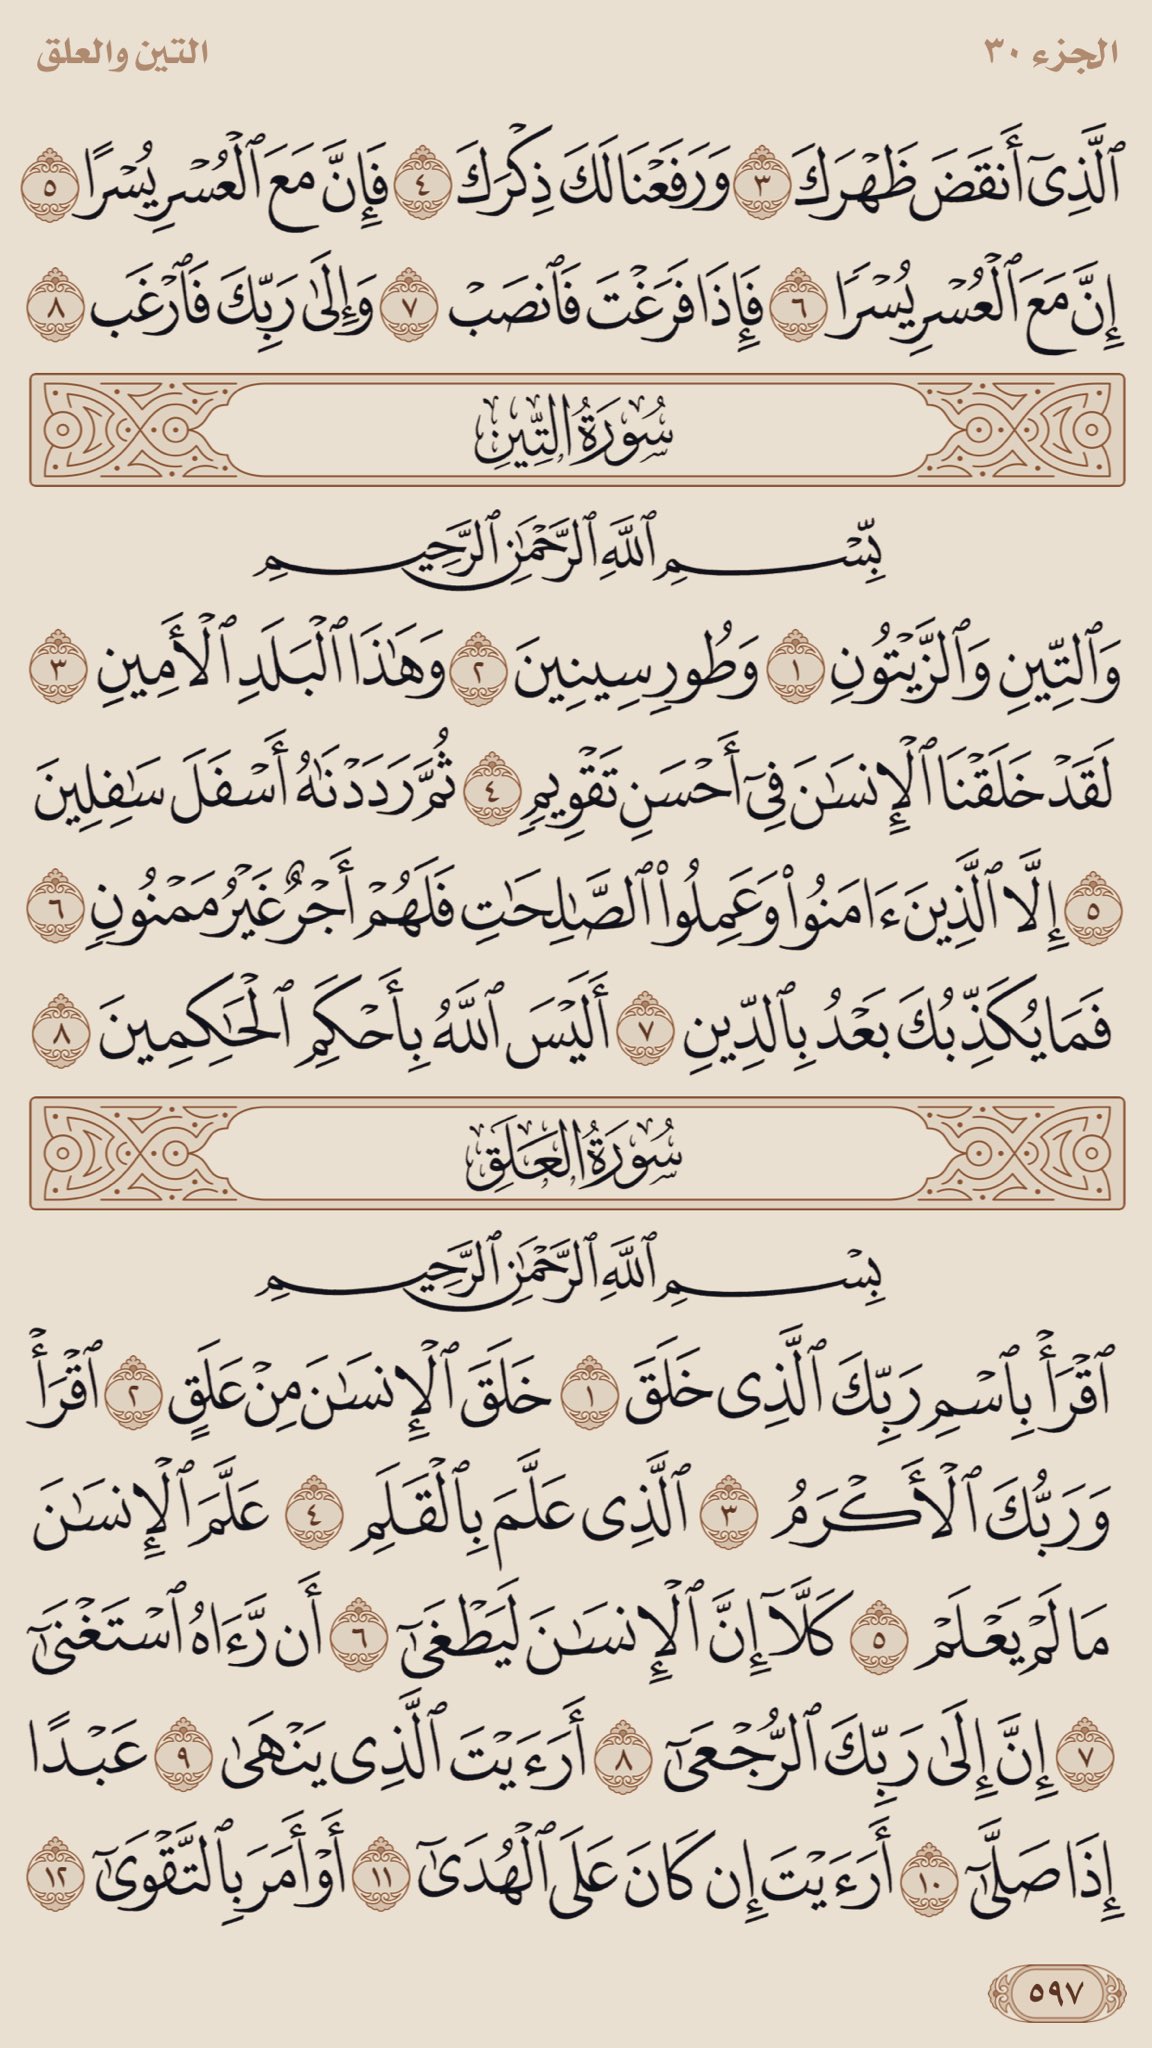 الجزء ٣٠
التين والعلق
ٱلَّذِىٓ أَنقَضَ ظَهْرَكَ ٣ وَرَفَعْنَا لَكَ ذِكْرَكَ ٤ فَإِنَّ مَعَ ٱلْعُسْرِ يُسْرًا ٥
إِنَّ مَعَ ٱلْعُسْرِ يُسْرًا ٦ فَإِذَا فَرَغْتَ فَٱنصَبْ ٧ وَإِلَىٰ رَبِّكَ فَٱرْغَب ٨
سُورَةُ التِّينِ
بِّسْمِ ٱللَّهِ ٱلرَّحْمَٰنِ ٱلرَّحِيمِ
وَٱلتِّينِ وَٱلزَّيْتُونِ ١ وَطُورِ سِينِينَ ٢ وَهَٰذَا ٱلْبَلَدِ ٱلْأَمِينِ ٣
لَقَدْ خَلَقْنَا ٱلْإِنسَٰنَ فِىٓ أَحْسَنِ تَقْوِيمٍ ٤ ثُمَّ رَدَدْنَٰهُ أَسْفَلَ سَٰفِلِينَ
٥ إِلَّا ٱلَّذِينَ ءَامَنُوا۟ وَعَمِلُوا۟ ٱلصَّٰلِحَٰتِ فَلَهُمْ أَجْرٌ غَيْرُ مَمْنُونٍ ٦
فَمَا يُكَذِّبُكَ بَعْدُ بِٱلدِّينِ ٧ أَلَيْسَ ٱللَّهُ بِأَحْكَمِ ٱلْحَٰكِمِينَ ٨
سُورَةُ العَلَقِ
بِسْمِ ٱللَّهِ ٱلرَّحْمَٰنِ ٱلرَّحِيمِ
ٱقْرَأْ بِٱسْمِ رَبِّكَ ٱلَّذِى خَلَقَ ١ خَلَقَ ٱلْإِنسَٰنَ مِنْ عَلَقٍ ٢ ٱقْرَأْ
وَرَبُّكَ ٱلْأَكْرَمُ ٣ ٱلَّذِى عَلَّمَ بِٱلْقَلَمِ ٤ عَلَّمَ ٱلْإِنسَٰنَ
مَا لَمْ يَعْلَمْ ٥ كَلَّآ إِنَّ ٱلْإِنسَٰنَ لَيَطْغَىٰٓ ٦ أَن رَّءَاهُ ٱسْتَغْنَىٰٓ
٧ إِنَّ إِلَىٰ رَبِّكَ ٱلرُّجْعَىٰٓ ٨ أَرَءَيْتَ ٱلَّذِى يَنْهَىٰ ٩ عَبْدًا
إِذَا صَلَّىٰٓ ١٠ أَرَءَيْتَ إِن كَانَ عَلَى ٱلْهُدَىٰٓ ١١ أَوْ أَمَرَ بِٱلتَّقْوَىٰٓ ١٢
٥٩٧